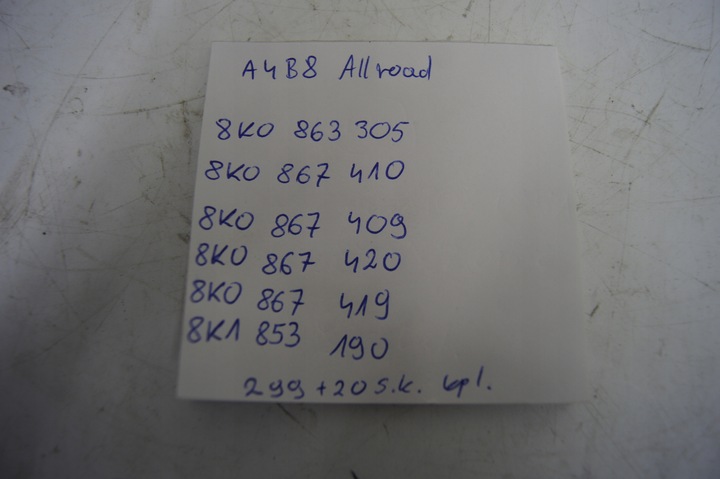 A4B8 Allroad
8K0 863 305
8K0 867 410
8K0 867 409
8K0 867 420
8K0 867 419
8K1 853 190
299 + 20 s.k. kpl.